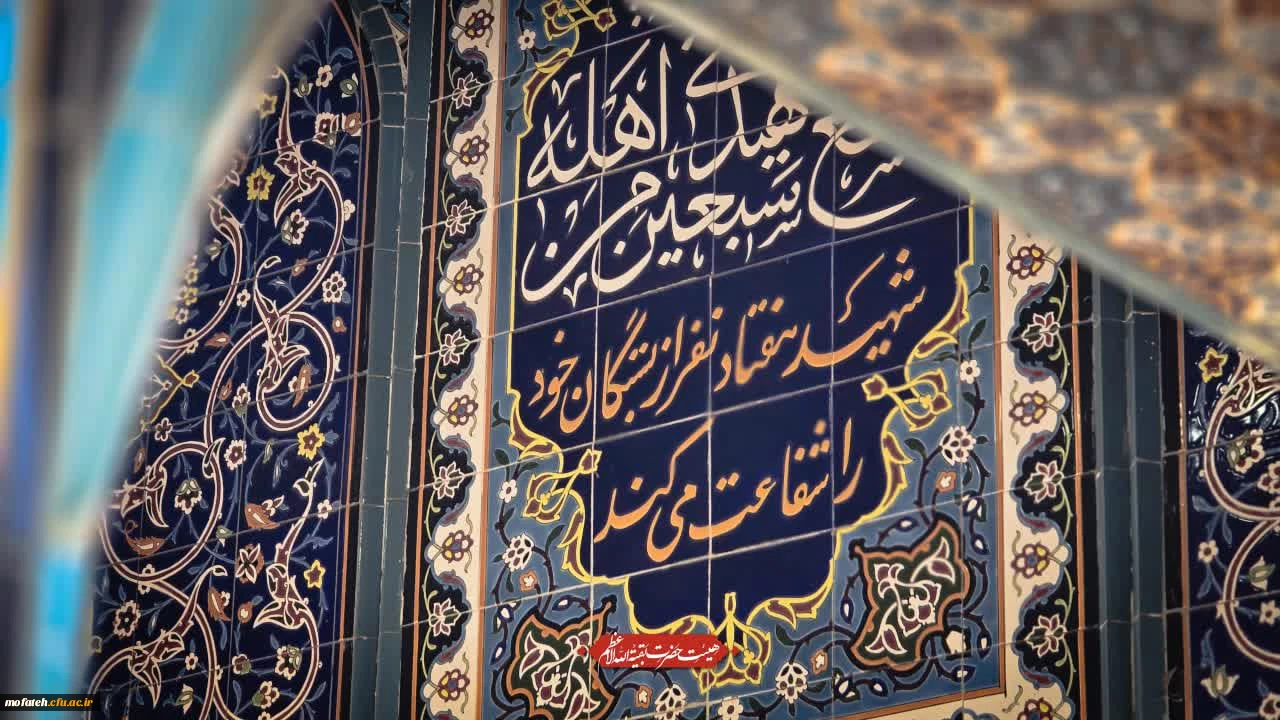 سبعین من اهله
شهید هفتاد نفر از بستگان خود
را شفاعت می کند
هیئت حضرت بقیة الله الاعظم
mofateh.cfu.ac.ir